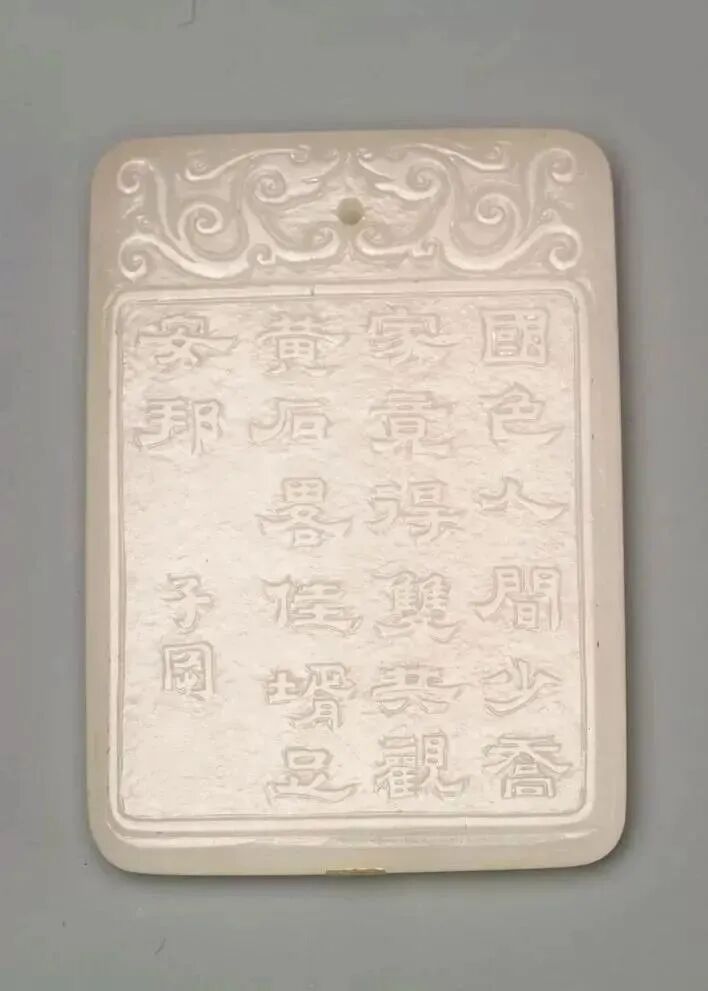 國色人間少喬
家竟得雙共觀
黃石畧佳壻足
安邦
子岡